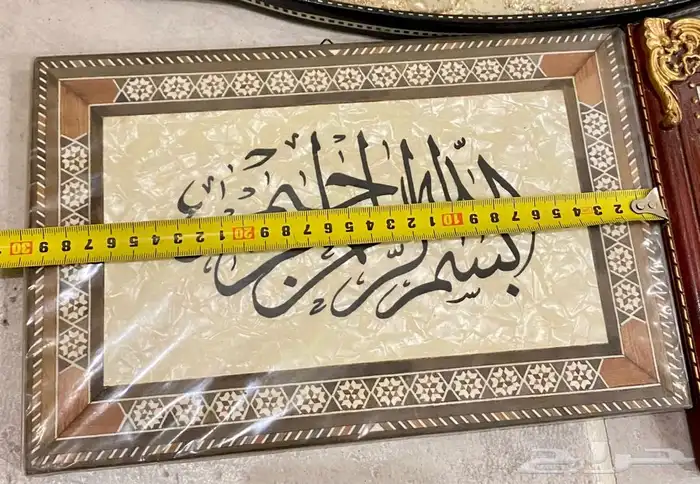 بسم الله الرحمن الرحيم
30 9 8 7 6 5 4 3 2 1 20 9 8 7 6 5 4 3 2 1 10 9 8 7 6 5 4 3 2
حراج